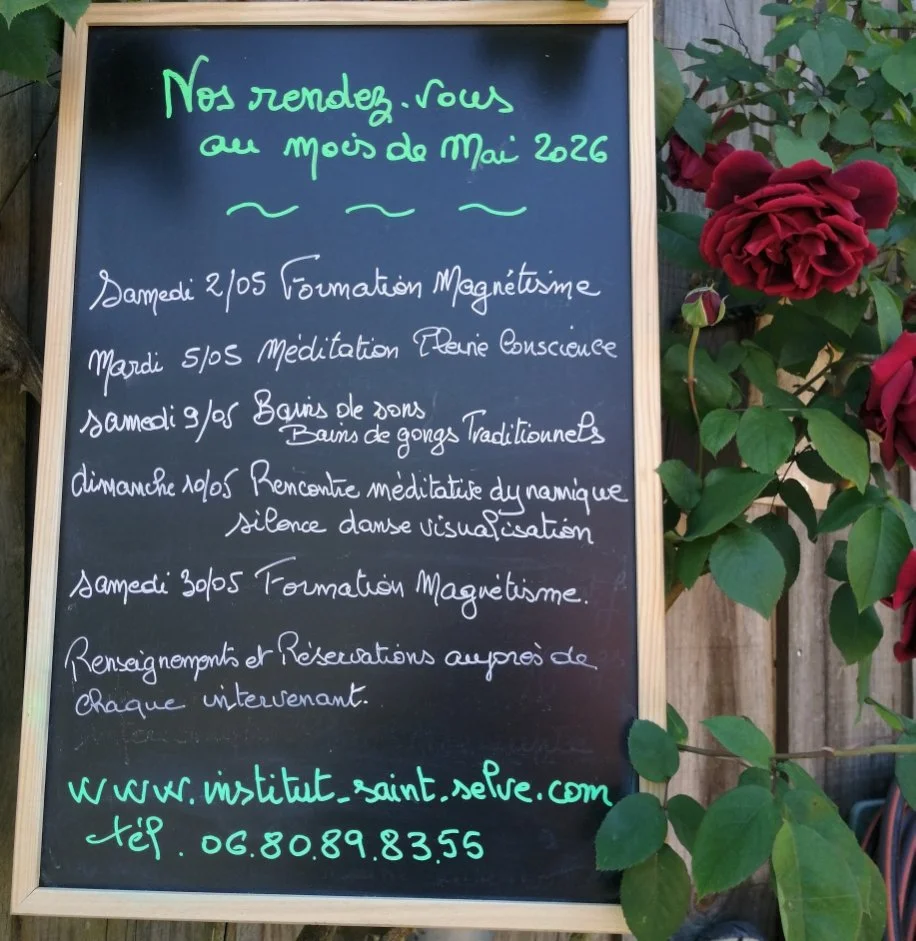 Nos rendez-vous
au mois de Mai 2026
Samedi 2/05 Formation Magnétisme
Mardi 5/05 Méditation Pleine Conscience
Samedi 9/05 Bains de sons
Bains de gongs Traditionnels
dimanche 10/05 Rencontre méditative dynamique
silence danse visualisation
Samedi 30/05 Formation Magnétisme.
Renseignements et Réservations auprès de
chaque intervenant.
www.institut-saint-selve.com
tél. 06.80.89.83.55